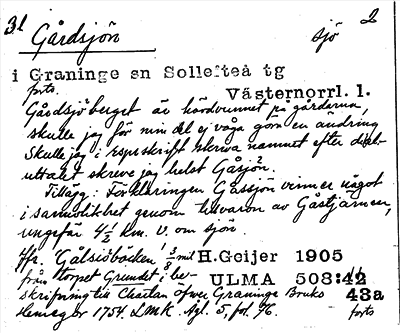 31 Gårdsjön sjö 2
i Graninge sn Sollefteå tg
forts. Västernorrl. l.
Gårdsjöberget är hårdvunnet på gårdarna,
skulle jag för min del ej våga göra en ändring.
Skulle jag i rspr skrift skriva namnet efter dial.
uttalet skreve jag helst Gåsjön.
Tillägg: Förklaringen Gåssjön vinner något
i sannolikhet genom tillvaron av Gåstjärnen,
ungefär 4½ km. v. om sjön.
Jfr. "Gålsiöbäcken 3/8 mil H. Geijer 1905
från torpet Grundet" i be- ULMA 508:42
skrifning till Chartan öfver Graninge Bruks 43a
Hemegor 1754. LMK. Ågl. 5, fol. 96. forts